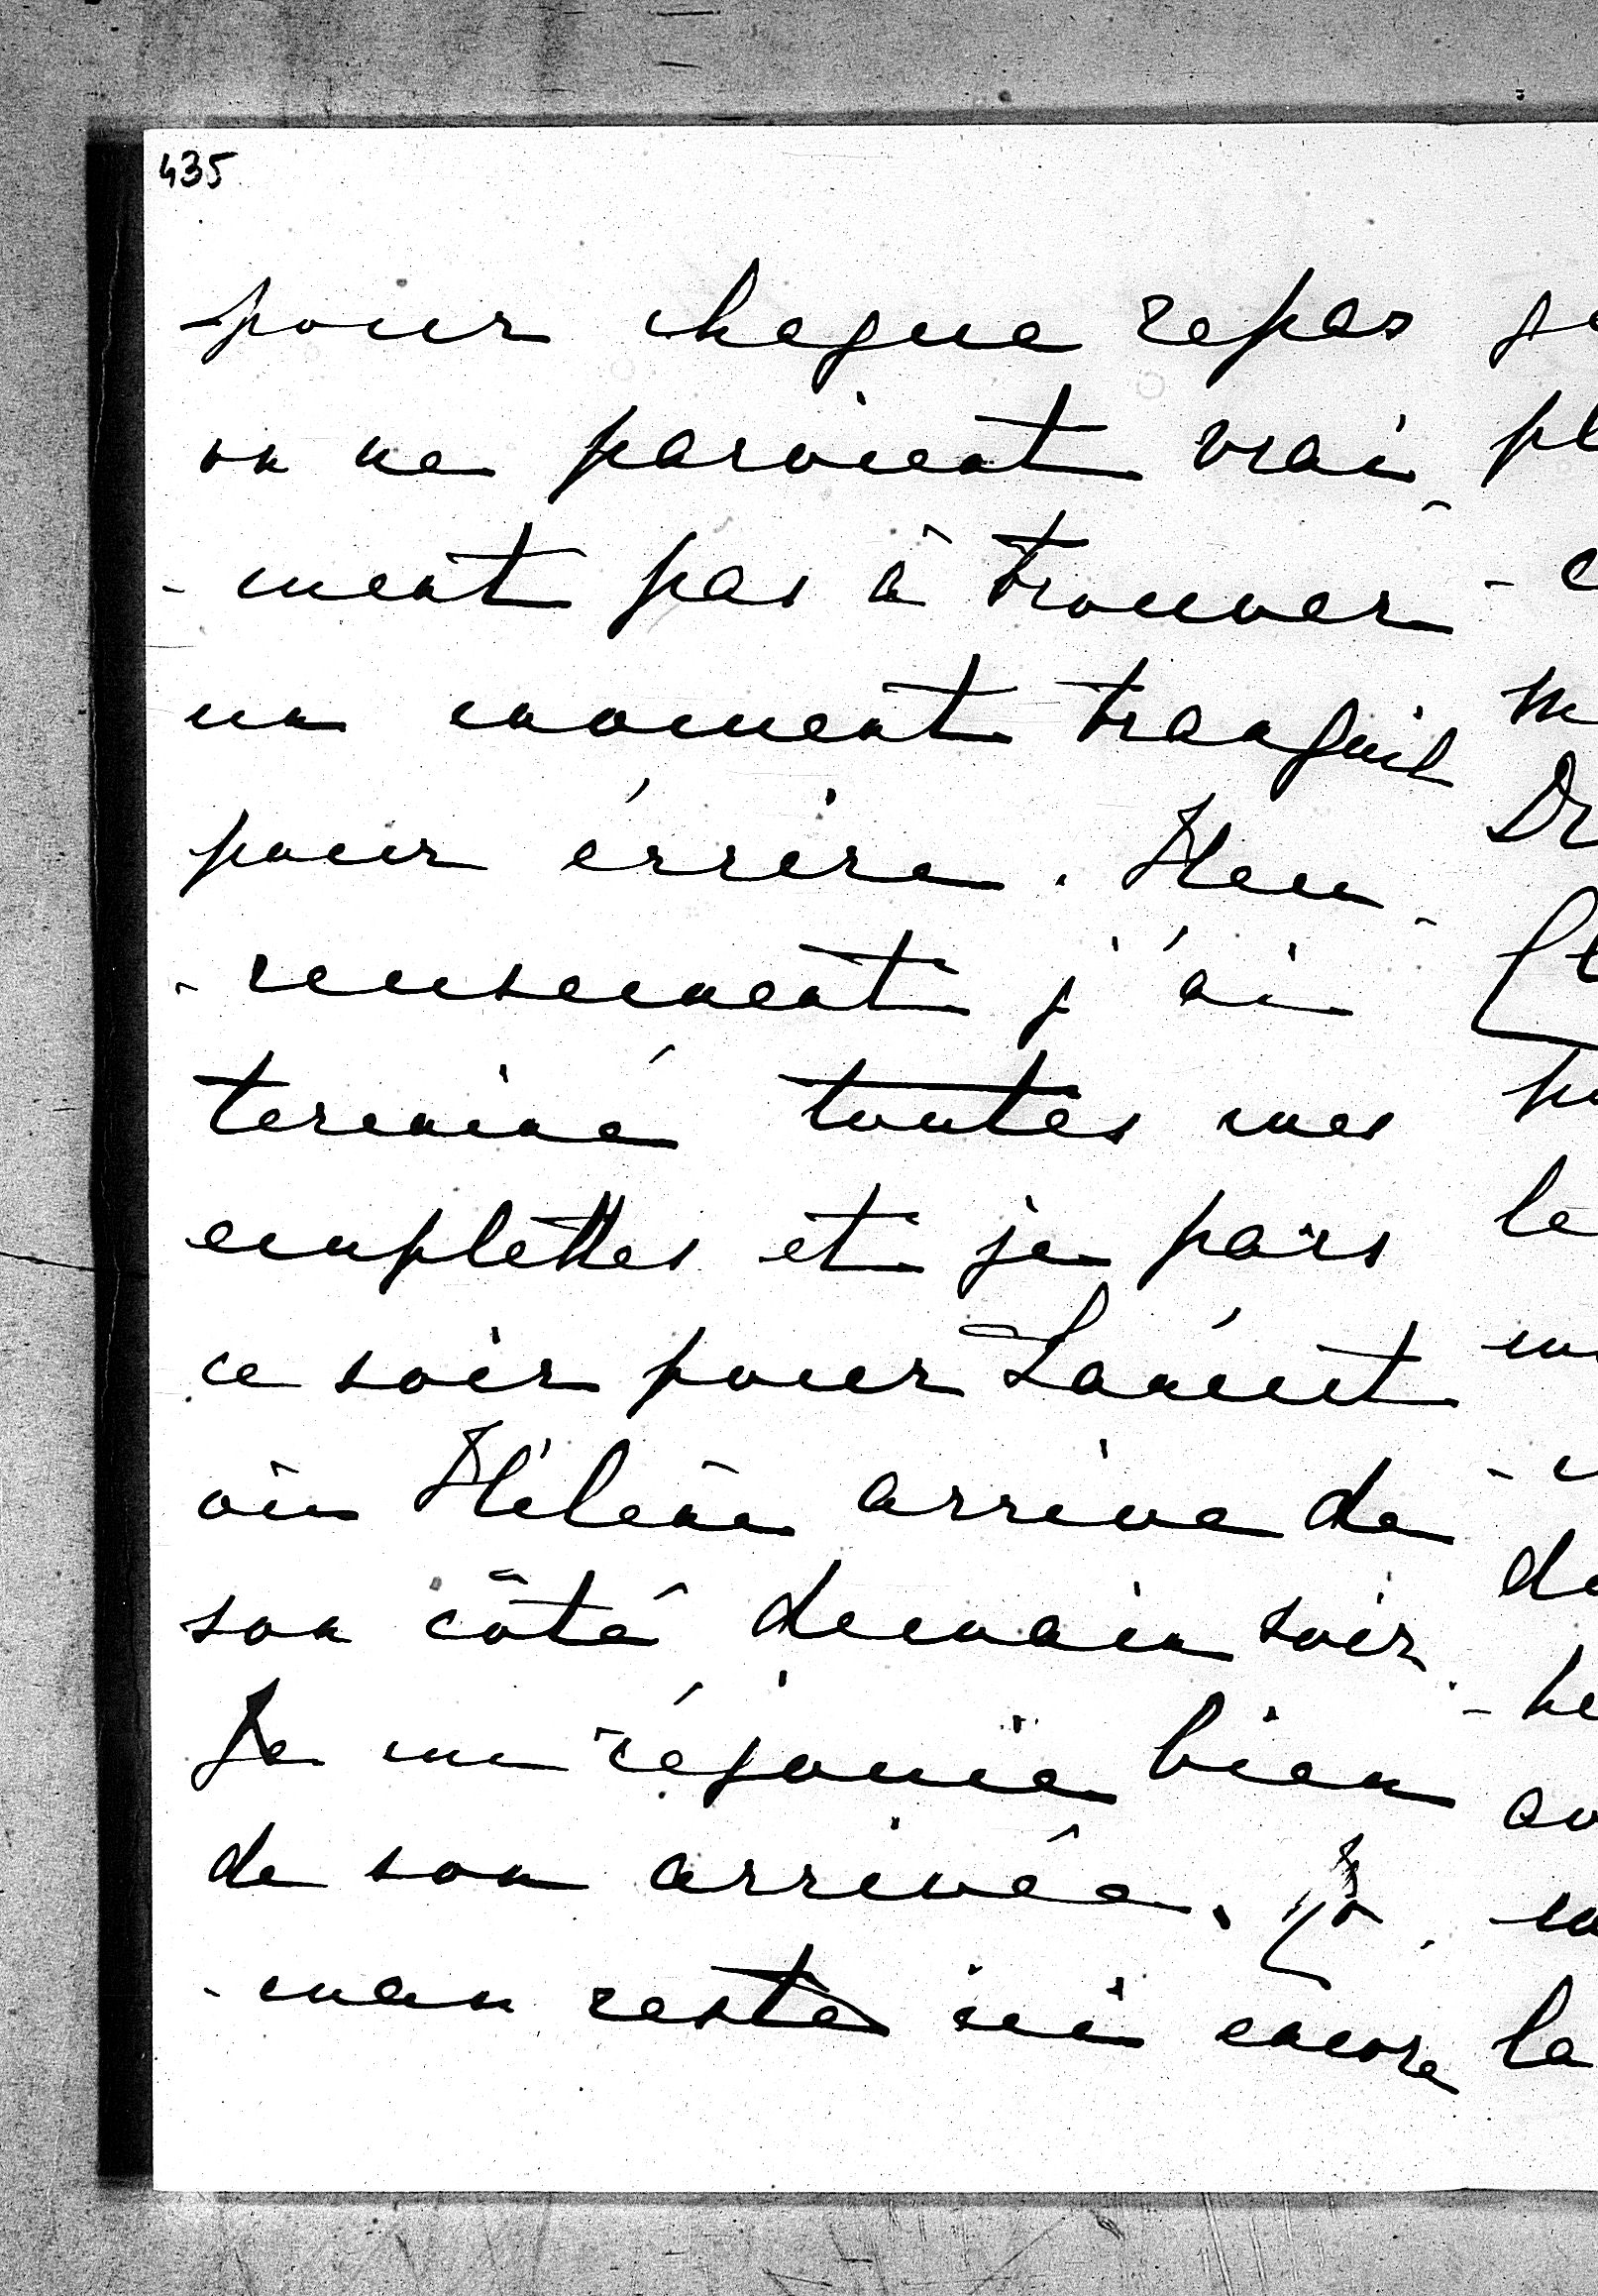 435
pour chaque repas
on ne parvient vrai-
-ment pas à trouver
un moment tranquil
pour écrire. Heu-
-reusement j'ai
terminé toutes mes
emplettes et je pars
ce soir pour
où Hélène arrive de
son côté demain soir.
Je me réjouie bien
de son arrivée.
-man reste ici encore